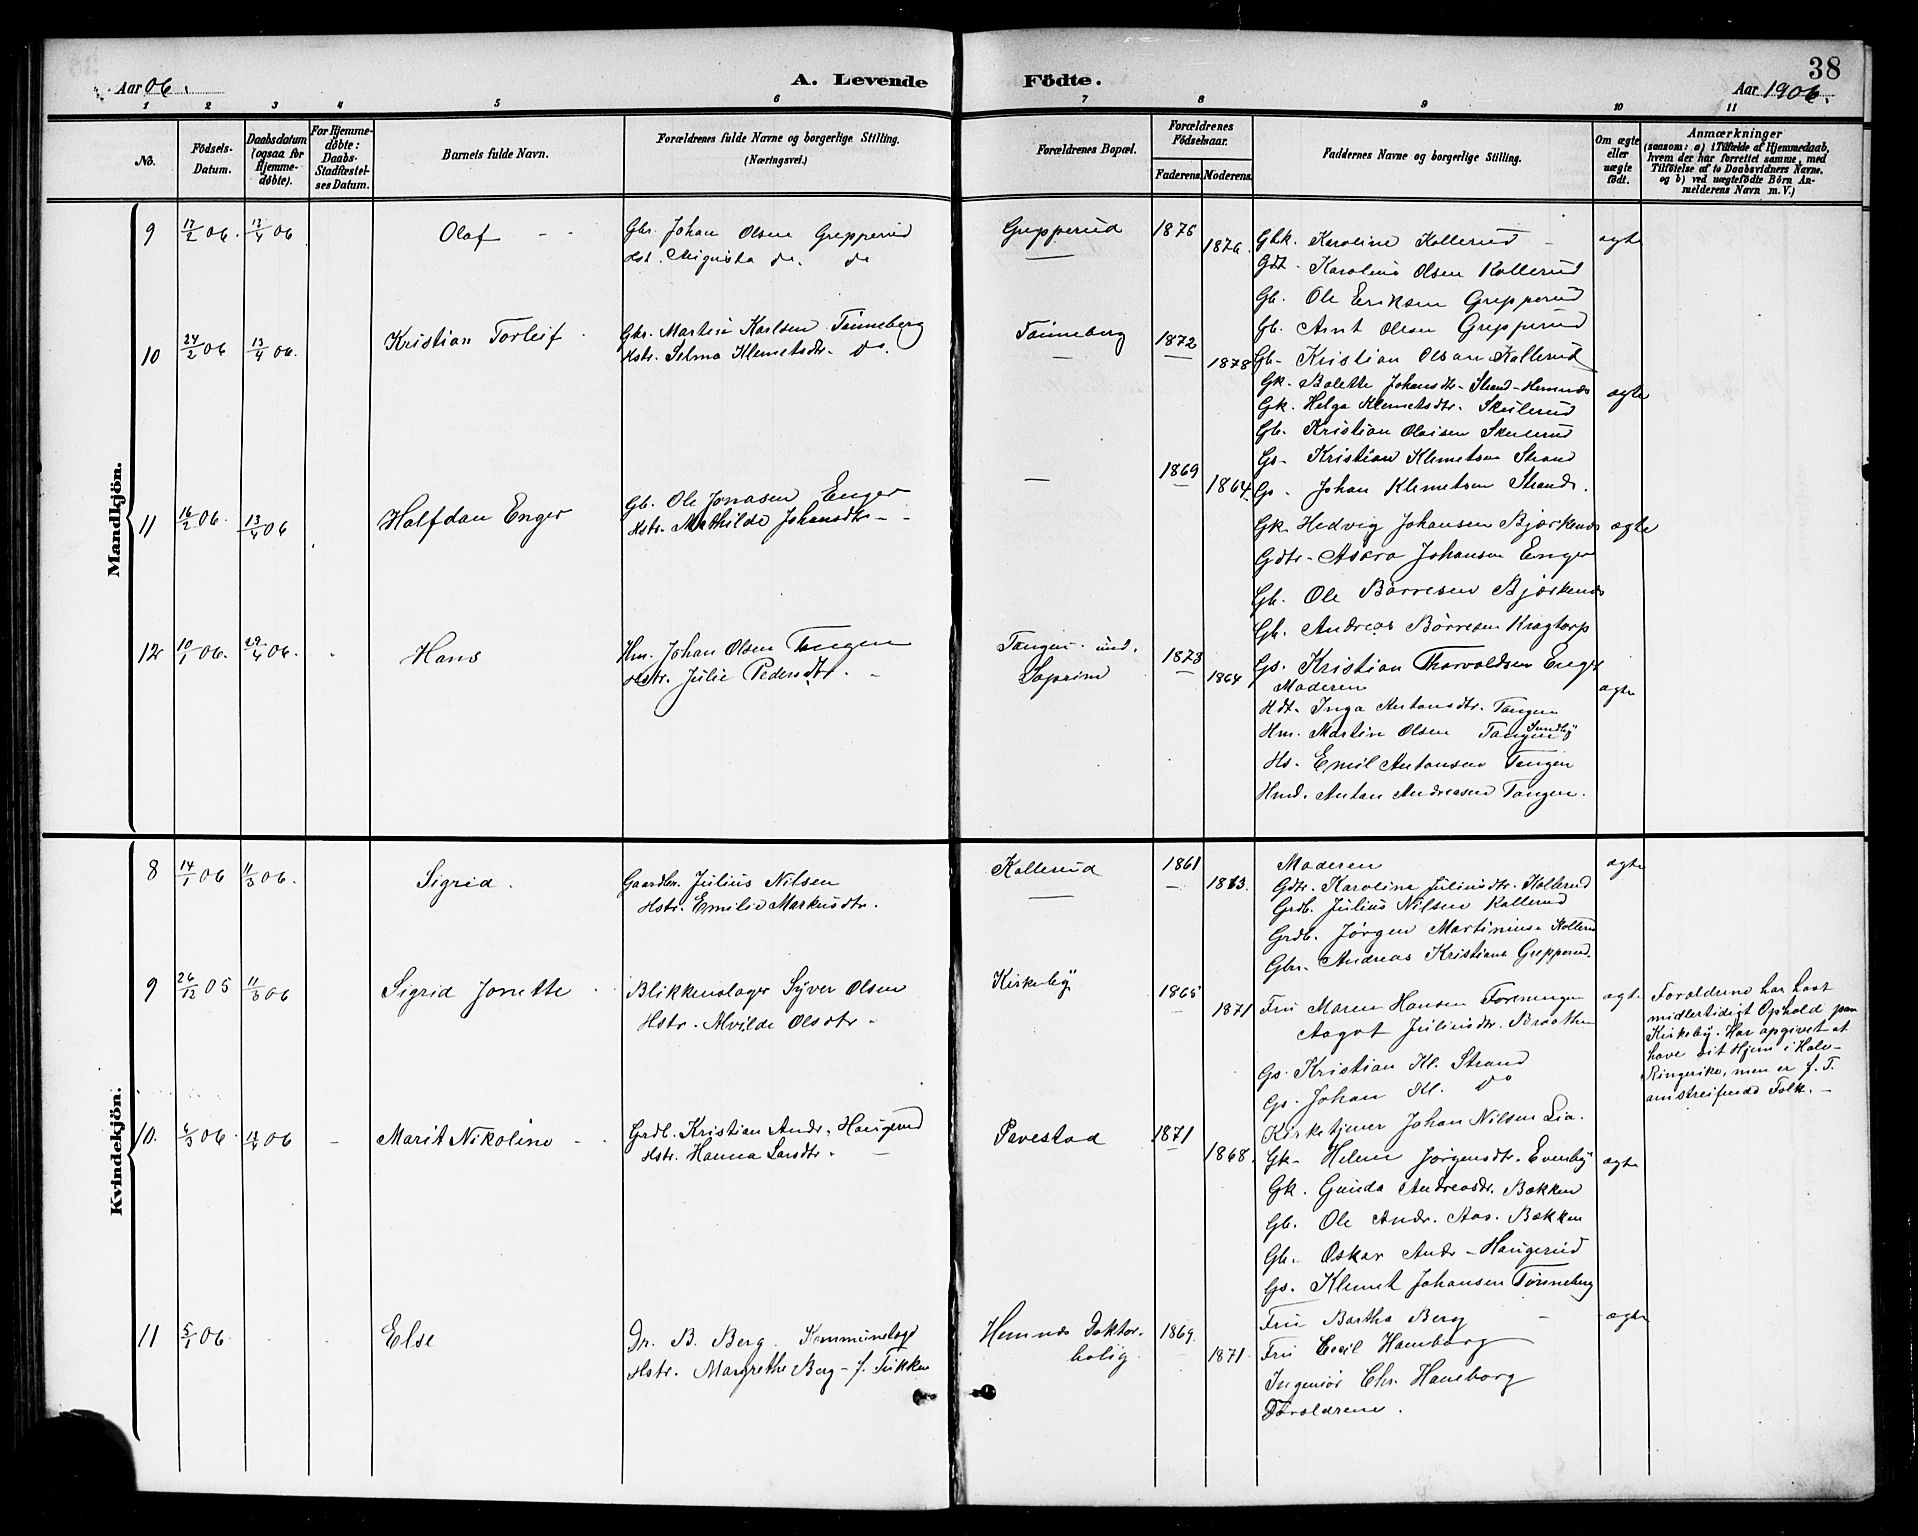 38
Aar 06. A. Levende Födte. Aar 1906.
1 2 3 4 5 6 7 8 9 10 11
No. Födsels-Datum. Daabsdatum (ogsaa for Hjemme-döbte). For Hjemme-döbte: Daabs-Stadfæstel-ses Datum. Barnets fulde Navn. Forældrenes fulde Navne og borgerlige Stilling. (Næringsvei.) Forældrenes Bopæl. Forældrenes Födselsaar. Faderens. Moderens. Faddernes Navne og borgerlige Stilling. Om ægte eller uægte födt. Anmærkninger (saasom: a) i Tilfælde af Hjemmedaab, hvem der har forrettet samme, med Tilföielse af to Daabsvidners Navne, og b) ved uægtefödte Börn An-melderens Navn m. V.)
Mandkjön.
9 17/2 06. 13/4 06 Olaf Gbr. Johan Olsen Grepperud Grepperud 1876 1876. Gbk. Karoline Kollerud ægte
Hst. Augusta do. do
Gdt. Karoline Olsen Kollerud
Gb. Ole Eriksen Grepperud
Gb. Arnt Olsen Grepperud
Gb. Kristian Olsen Kollerud
10 24/2 06 13/4 06. Kristian Torleif Gbr. Martin Karlsen Tönneberg Tönneberg 1872 1878 ægte
Hstr. Selma Klemetsdtr. do.
Gk. Bolette Johansdtr. Strand-Hemnæs
Gk. Helga Klemetsdtr. Skulerud
Gb. Kristian Olaisen Skulerud
Gs. Kristian Klemetsen Strand
Gs. Johan Klemetsen Strand.
11 16/2 06. 13/4 06 Halfdan Enger Gb. Ole Jonasen Enger 1869 1864. ægte
Hstr. Mathilde Johansdtr.
Gk. Hedvig Johansen Bjærkenæs
Gdtr. Asora Johansen Enger
Gb. Ole Börresen Bjærkenæs
Gb. Andreas Börresen Kragtorp
Gs. Kristian Thorvaldsen Enger
12 10/1 06. 29/4 06. Hans Hm. Johan Olsen Tangen Tangen und. 1873 1864 ægte
Hstr. Julie Pedersdtr. Soprim
Moderen
Hdt. Inga Antonsdtr. Tangen
Hm. Martin Olsen Tangen Sundby
Hs. Emil Antonsen Tangen
Hmd. Anton Andreasen Tangen.
Kvindekjön.
8 14/1 06 11/3 06. Sigrid. Gaardbr. Julius Nilsen Kollerud 1861 1873. Moderen ægte
Hstr. Emilie Markusdtr.
Gdtr. Karoline Juliusdtr. Kollerud
Grdb. Julius Nilsen Kollerud
Grdb. Jörgen Martinius. Kollerud
Gbr. Andreas Kristians. Grepperud.
9 26/12 05 11/3 06 Sigrid Jonette Blikkenslager Syver Olsen Kirkebÿ 1865 1871 ægte
Hstr. Alvilde Olsdtr.
Fru Maren Hansen Foreningen
Aagot Juliusdtr. Braathen
Gs. Kristian Kl. Strand
Gs. Johan Kl. do
Forældrene har havt
midlertidigt Ophold paa
Kirkeby. Har opgivet at
have sit Hjem i Hole-
Ringerike, men er f. T.
omstreifende Folk. -
Kirketjener Johan Nilsen Lia.
10. 6/3 06. 13/4 06 Marit Nikoline Grdb. Kristian Andr. Haugerud Prestad 1871 1868. ægte
Hstr. Hanna Larsdtr.
Gk. Helene Jörgensdtr. Evenby
Gk. Gunda Andreasdtr. Bækken
Gb. Ole Andr. Aas. Bækken
Gb. Oskar Andr. Haugerud
Gs. Klemet Johansen Tönneberg
11 5/1 06. Else Dr. B. Berg. Kommunelæge Hemnæs Doktor- 1869. 1871. Fru Bartha Berg ægte
Hstr. Margrethe Berg f. Fukken bolig.
Fru Cecil Haneborg
Ingeniör Chr. Haneborg
Forældrene.